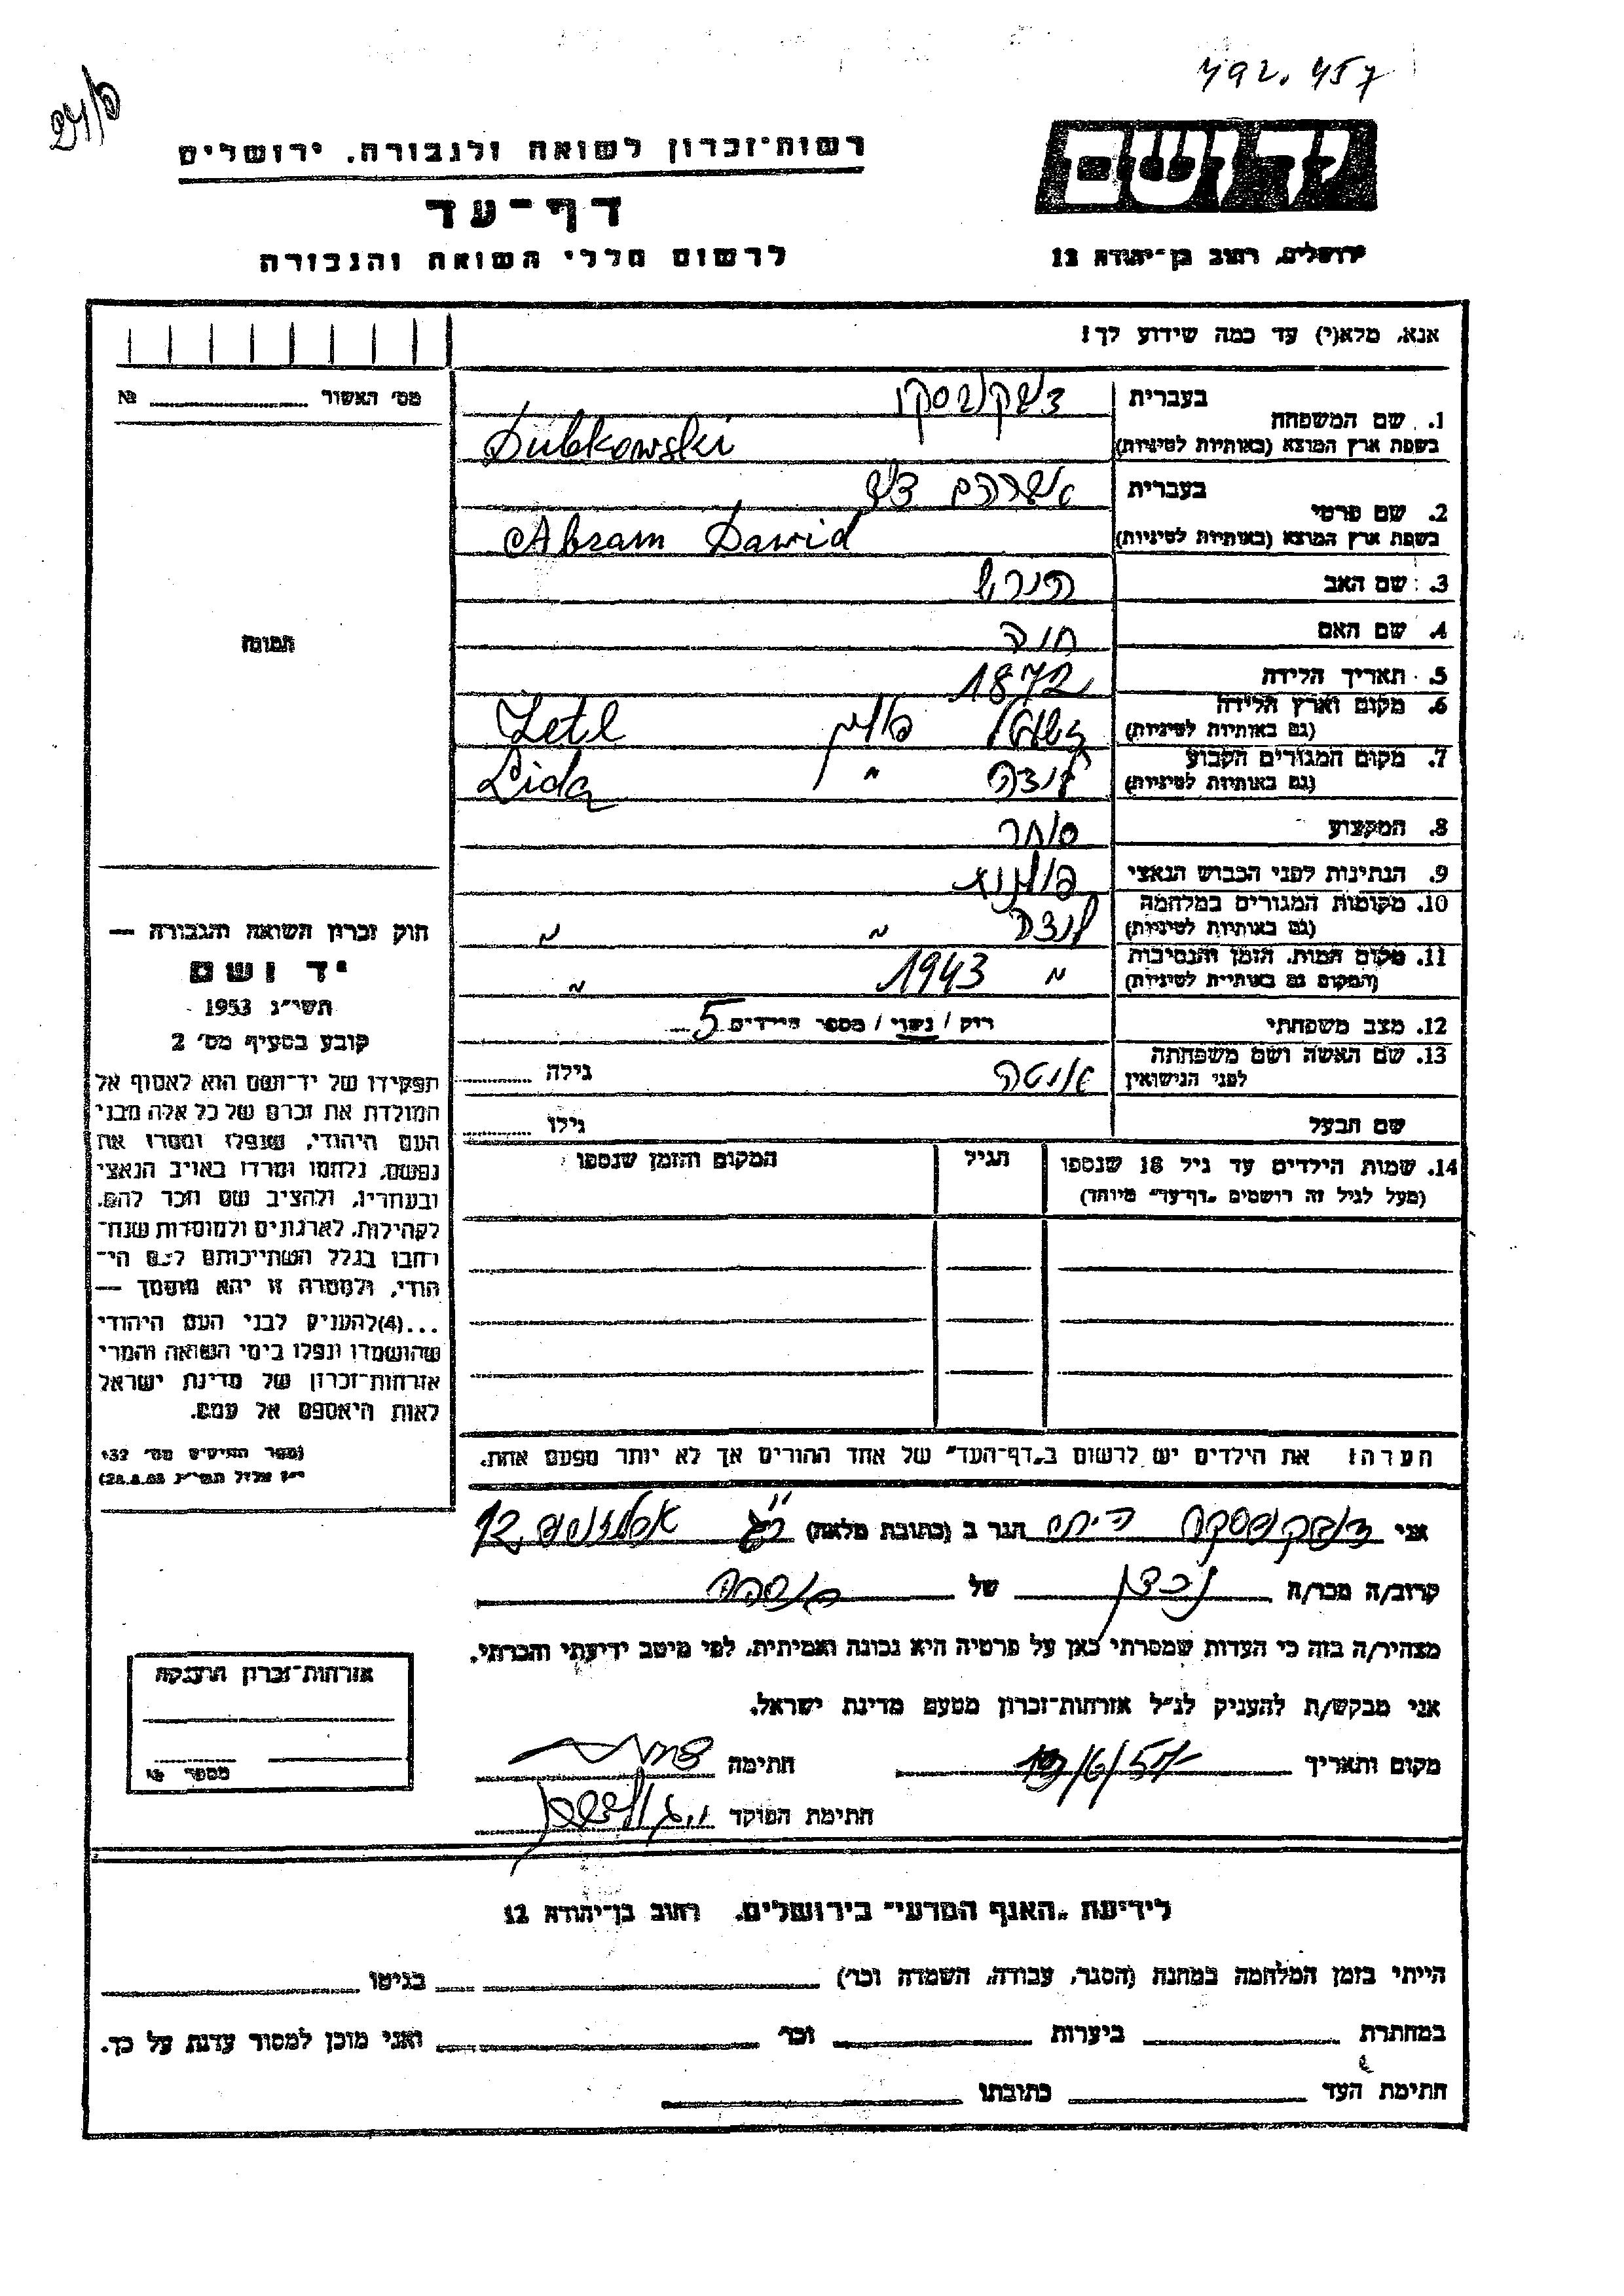 492.457
רשות-זכרון לשואה ולגבורה. ירושלים
דף-עד
לרשום חללי השואה והגבורה
יד ושם
ירושלים, רחוב בן-יהודה 12
אנא, מלא(י) עד כמה שידוע לך!
מס' האשור №
1. שם המשפחה
בעברית
דובקובסקי
בשפת ארץ המוצא (באותיות לטיניות)
Dubkowski
2. שם פרטי
בעברית
אברהם דוד
בשפת ארץ המוצא (באותיות לטיניות)
Abram Dawid
3. שם האב
הירש
4. שם האם
חיה
5. תאריך הלידה
1872
6. מקום וארץ הלידה
(גם באותיות לטיניות)
פולין Zetl
7. מקום המגורים הקבוע
(גם באותיות לטיניות)
לידה " Lida
8. המקצוע
סוחר
9. הנתינות לפני הכבוש הנאצי
פולנית
10. מקומות המגורים במלחמה
(גם באותיות לטיניות)
לידה " "
11. מקום המות, הזמן והנסיבות
(המקום גם באותיות לטיניות)
" 1943 "
12. מצב משפחתי
רוק / נשוי / מספר הילדים 5
13. שם האשה ושם משפחתה
לפני הנישואין
גילה
שם הבעל
גילו
14. שמות הילדים עד גיל 18 שנספו
(מעל לגיל זה רושמים "דף-עד" מיוחד)
הגיל
המקום והזמן שנספו
תמונה
חוק זכרון השואה והגבורה —
יד ושם
תשי"ג 1953
קובע בסעיף מס' 2
תפקידו של יד-ושם הוא לאסוף אל
המולדת את זכרם של כל אלה מבני
העם היהודי, שנפלו ומסרו את
נפשם, נלחמו ומרדו באויב הנאצי
ובעוזריו, ולהציב שם וזכר להם,
לקהילות, לארגונים ולמוסדות שנח-
רבו בגלל השתייכותם לעם הי-
הודי, ולמטרה זו יהא מוסמך —
...(4) להעניק לבני העם היהודי
שהושמדו ונפלו בימי השואה והמרי
אזרחות-זכרון של מדינת ישראל
לאות היאספם אל עמם.
(ספר החוקים מס' 132
י"ז אלול תשי"ג 28.8.53)
הערה: את הילדים יש לרשום ב"דף-העד" של אחד ההורים אך לא יותר מפעם אחת.
אני דובקובסקי הגר ב (כתובת מלאה)
קרוב/ה מכר/ה נכדו של הנספה
מצהיר/ה בזה כי העדות שמסרתי כאן על פרטיה היא נכונה ואמיתית, לפי מיטב ידיעתי והכרתי.
אני מבקש/ת להעניק לנ"ל אזרחות-זכרון מטעם מדינת ישראל.
מקום ותאריך
חתימה
חתימת הפוקד
אזרחות-זכרון הוענקה
מספר №
לידיעת "האגף המדעי" בירושלים. רחוב בן-יהודה 12
הייתי בזמן המלחמה במחנה (הסגר, עבודה, השמדה וכו') בגיטו
במחתרת ביערות וכו' ואני מוכן למסור עדות על כך.
חתימת העד כתובתו